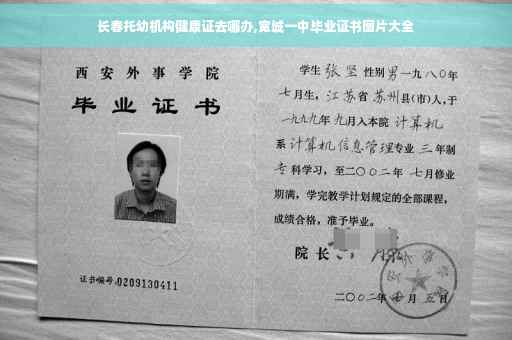 长春托幼机构健康证去哪办,宽城一中毕业证书图片大全
西安外事学院
毕业证书
证书编号:0209130411
学生 张坚 性别 男 一九八〇年
七月生，江苏省 苏州 县(市)人，于
一九九九年 九月入本院 计算机
系 计算机信息管理 专业 三 年制
专 科学习，至二〇〇二年 七月修业
期满，学完教学计划规定的全部课程，
成绩合格，准予毕业。
院 长
二〇〇二年 七 月 五 日